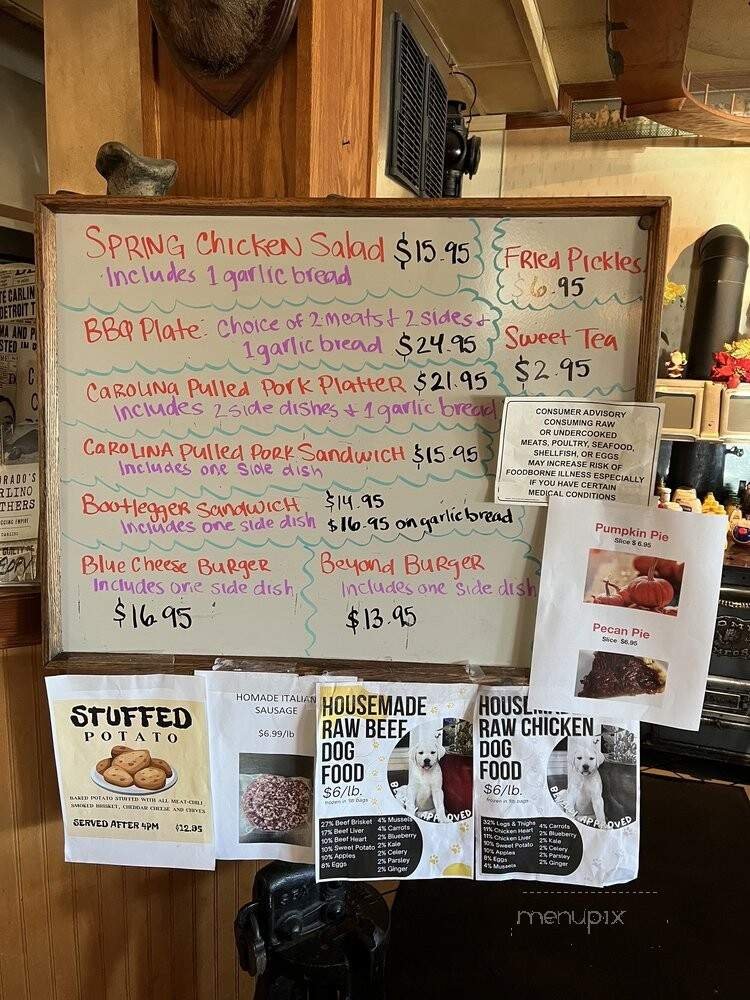 SPRING Chicken Salad $15.95
Includes 1 garlic bread
BBQ Plate: Choice of 2 meats + 2 sides +
1 garlic bread $24.95
CAROLINA Pulled Pork Platter $21.95
Includes 2 side dishes + 1 garlic bread
CAROLINA Pulled Pork Sandwich $15.95
Includes one side dish
Bootlegger Sandwich $14.95
Includes one side dish $16.95 on garlic bread
Blue Cheese Burger
Includes one side dish
$16.95
Beyond Burger
Includes one side dish
$13.95
Fried Pickles
$6.95
Sweet Tea
$2.95
CONSUMER ADVISORY
CONSUMING RAW
OR UNDERCOOKED
MEATS, POULTRY, SEAFOOD,
SHELLFISH, OR EGGS
MAY INCREASE RISK OF
FOODBORNE ILLNESS ESPECIALLY
IF YOU HAVE CERTAIN
MEDICAL CONDITIONS
Pumpkin Pie
Slice $ 6.95
Pecan Pie
Slice $6.95
STUFFED
POTATO
BAKED POTATO STUFFED WITH ALL MEAT-CHILI
SMOKED BRISKET, CHEDDAR CHEESE AND CHIVES
SERVED AFTER 4PM $12.95
HOMADE ITALIAN
SAUSAGE
$6.99/lb
HOUSEMADE
RAW BEEF
DOG
FOOD
$6/lb.
frozen in 1lb bags
27% Beef Brisket
17% Beef Liver
10% Beef Heart
10% Sweet Potato
10% Apples
8% Eggs
4% Mussels
4% Carrots
2% Blueberry
2% Kale
2% Celery
2% Parsley
2% Ginger
APPROVED
RAW CHICKEN
DOG
FOOD
$6/lb.
frozen in 1lb bags
32% Legs & Thighs
11% Chicken Heart
11% Chicken Liver
10% Sweet Potato
10% Apples
8% Eggs
4% Mussels
4% Carrots
2% Blueberry
2% Kale
2% Celery
2% Parsley
2% Ginger
APPROVED
menupix